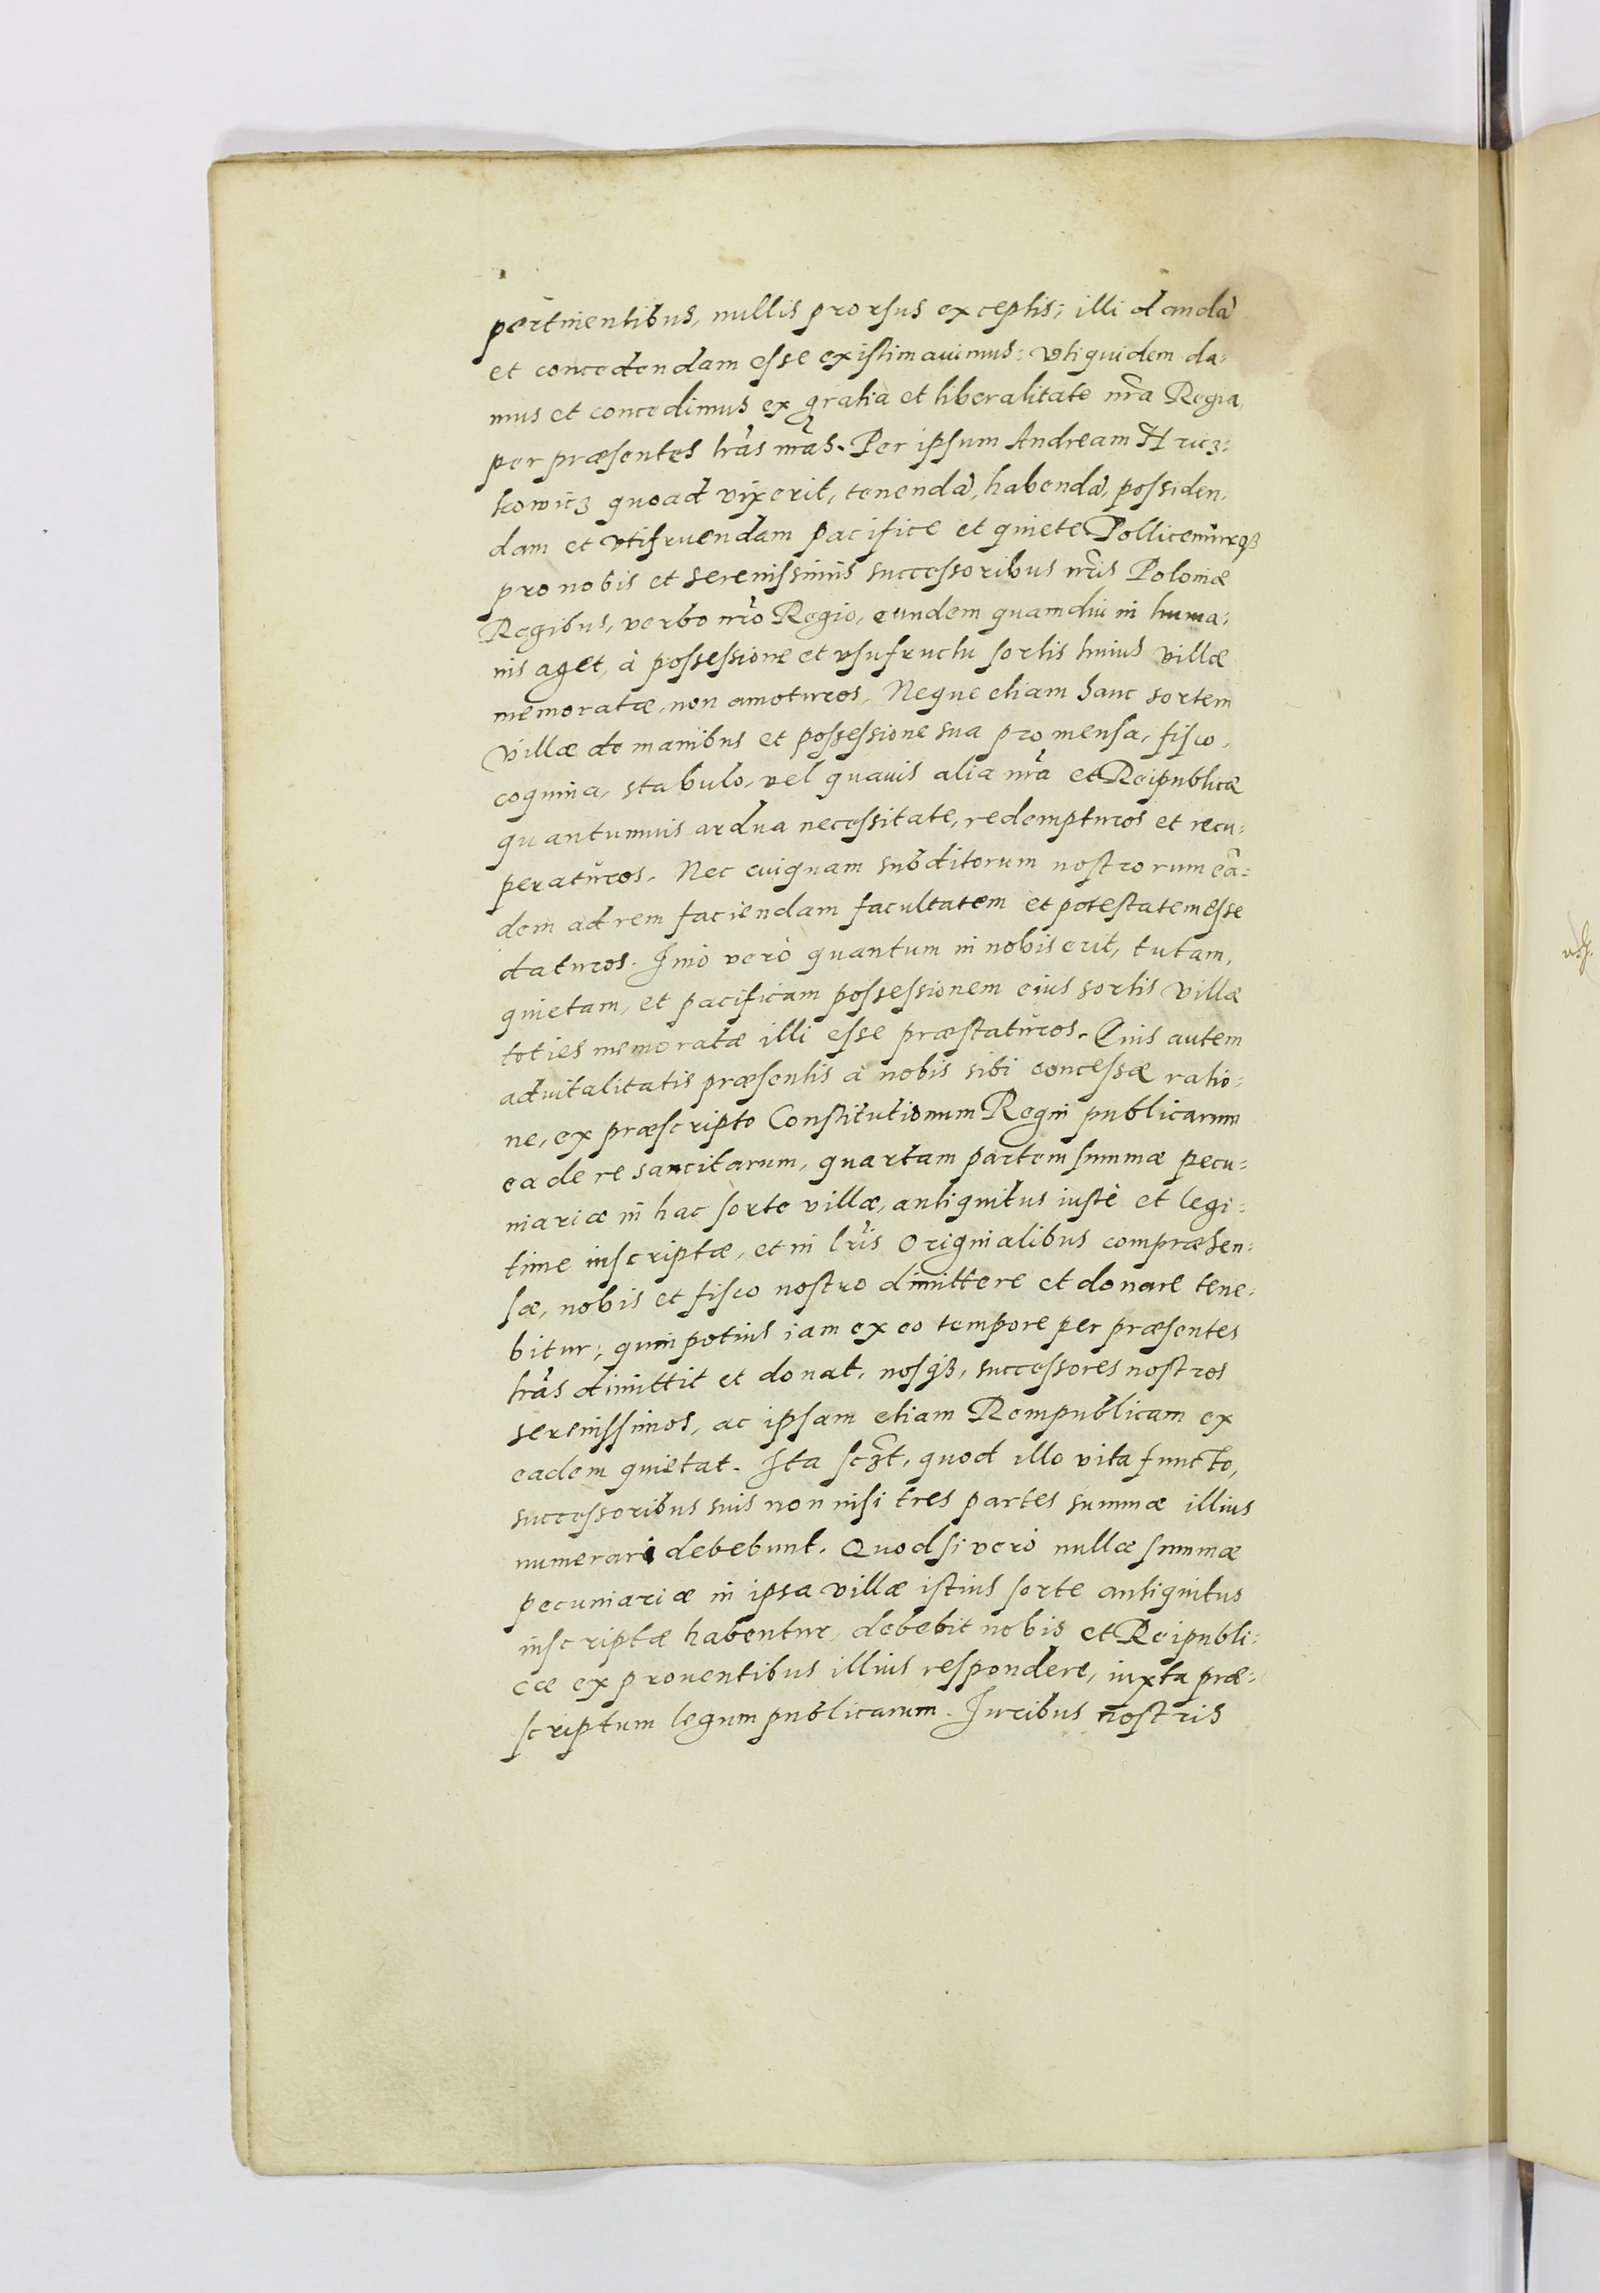 pertinentibus, nullis prorsus exceptis; illi dandã
et concedendam esse existimauimus: vtiquidem da:
mus et concedimus ex gratia et liberalitate nr̃a Regia,
per præsentes lr̃as nr̃as. Per ipsum Andream Hricz:
kowicz quoad vixerit, tenendã, habendã, possiden,
dam et vtifruendam pacifice et quiete Pollicemurqȝ
pro nobis et serenissimis successoribus nr̃is Poloniæ
Regibus, verbo nr̃o Regio, eundem quamdiu in huma:
nis aget, à possessione et vsufructu sortis huius villæ
memoratæ, non amoturos. Neque etiam hanc sortem
villæ de manibus et possessione sua pro mensa, fisco,
coquina, stabulo, vel quauis alia nr̃a et Reipublicæ
quantumuis ardua necessitate, redempturos et recu:
peraturos. Nec cuiquam subditorum nostrorum eã:
dem ad rem faciendam facultatem et potestatem esse
daturos. Imò verò quantum in nobis erit, tutam,
quietam, et pacificam possessionem eius sortis villæ
toties memoratæ illi esse præstaturos. Quis autem
aduitalitatis præsentis à nobis sibi concessæ ratio:
ne, ex præscripto Constitutionum Regni publicarum
ea de re sancitarum, quartam partem summæ pecu:
niariæ in hac sorte villæ, antiquitus iustè et legi:
time inscriptæ, et in lr̃is originalibus compræhen:
sæ, nobis et fisco nostro dimittere et donare tene:
bitur; quin potius iam ex eo tempore per præsentes
lr̃as dimittit et donat, nosqȝ, successores nostros
serenissimos, ac ipsam etiam Rempublicam ex
eadem quietat. Ita sczt, quod illo vita functo,
successoribus suis non nisi tres partes summæ illius
numerari debebunt. Quodsi verò nullæ summæ
pecuniariæ in ipsa villæ istius sorte antiquitus
inscriptæ habentur, debebit nobis et Reipubli:
cæ ex prouentibus illius respondere, iuxta præ:
scriptum legum publicarum. Iuribus nostris